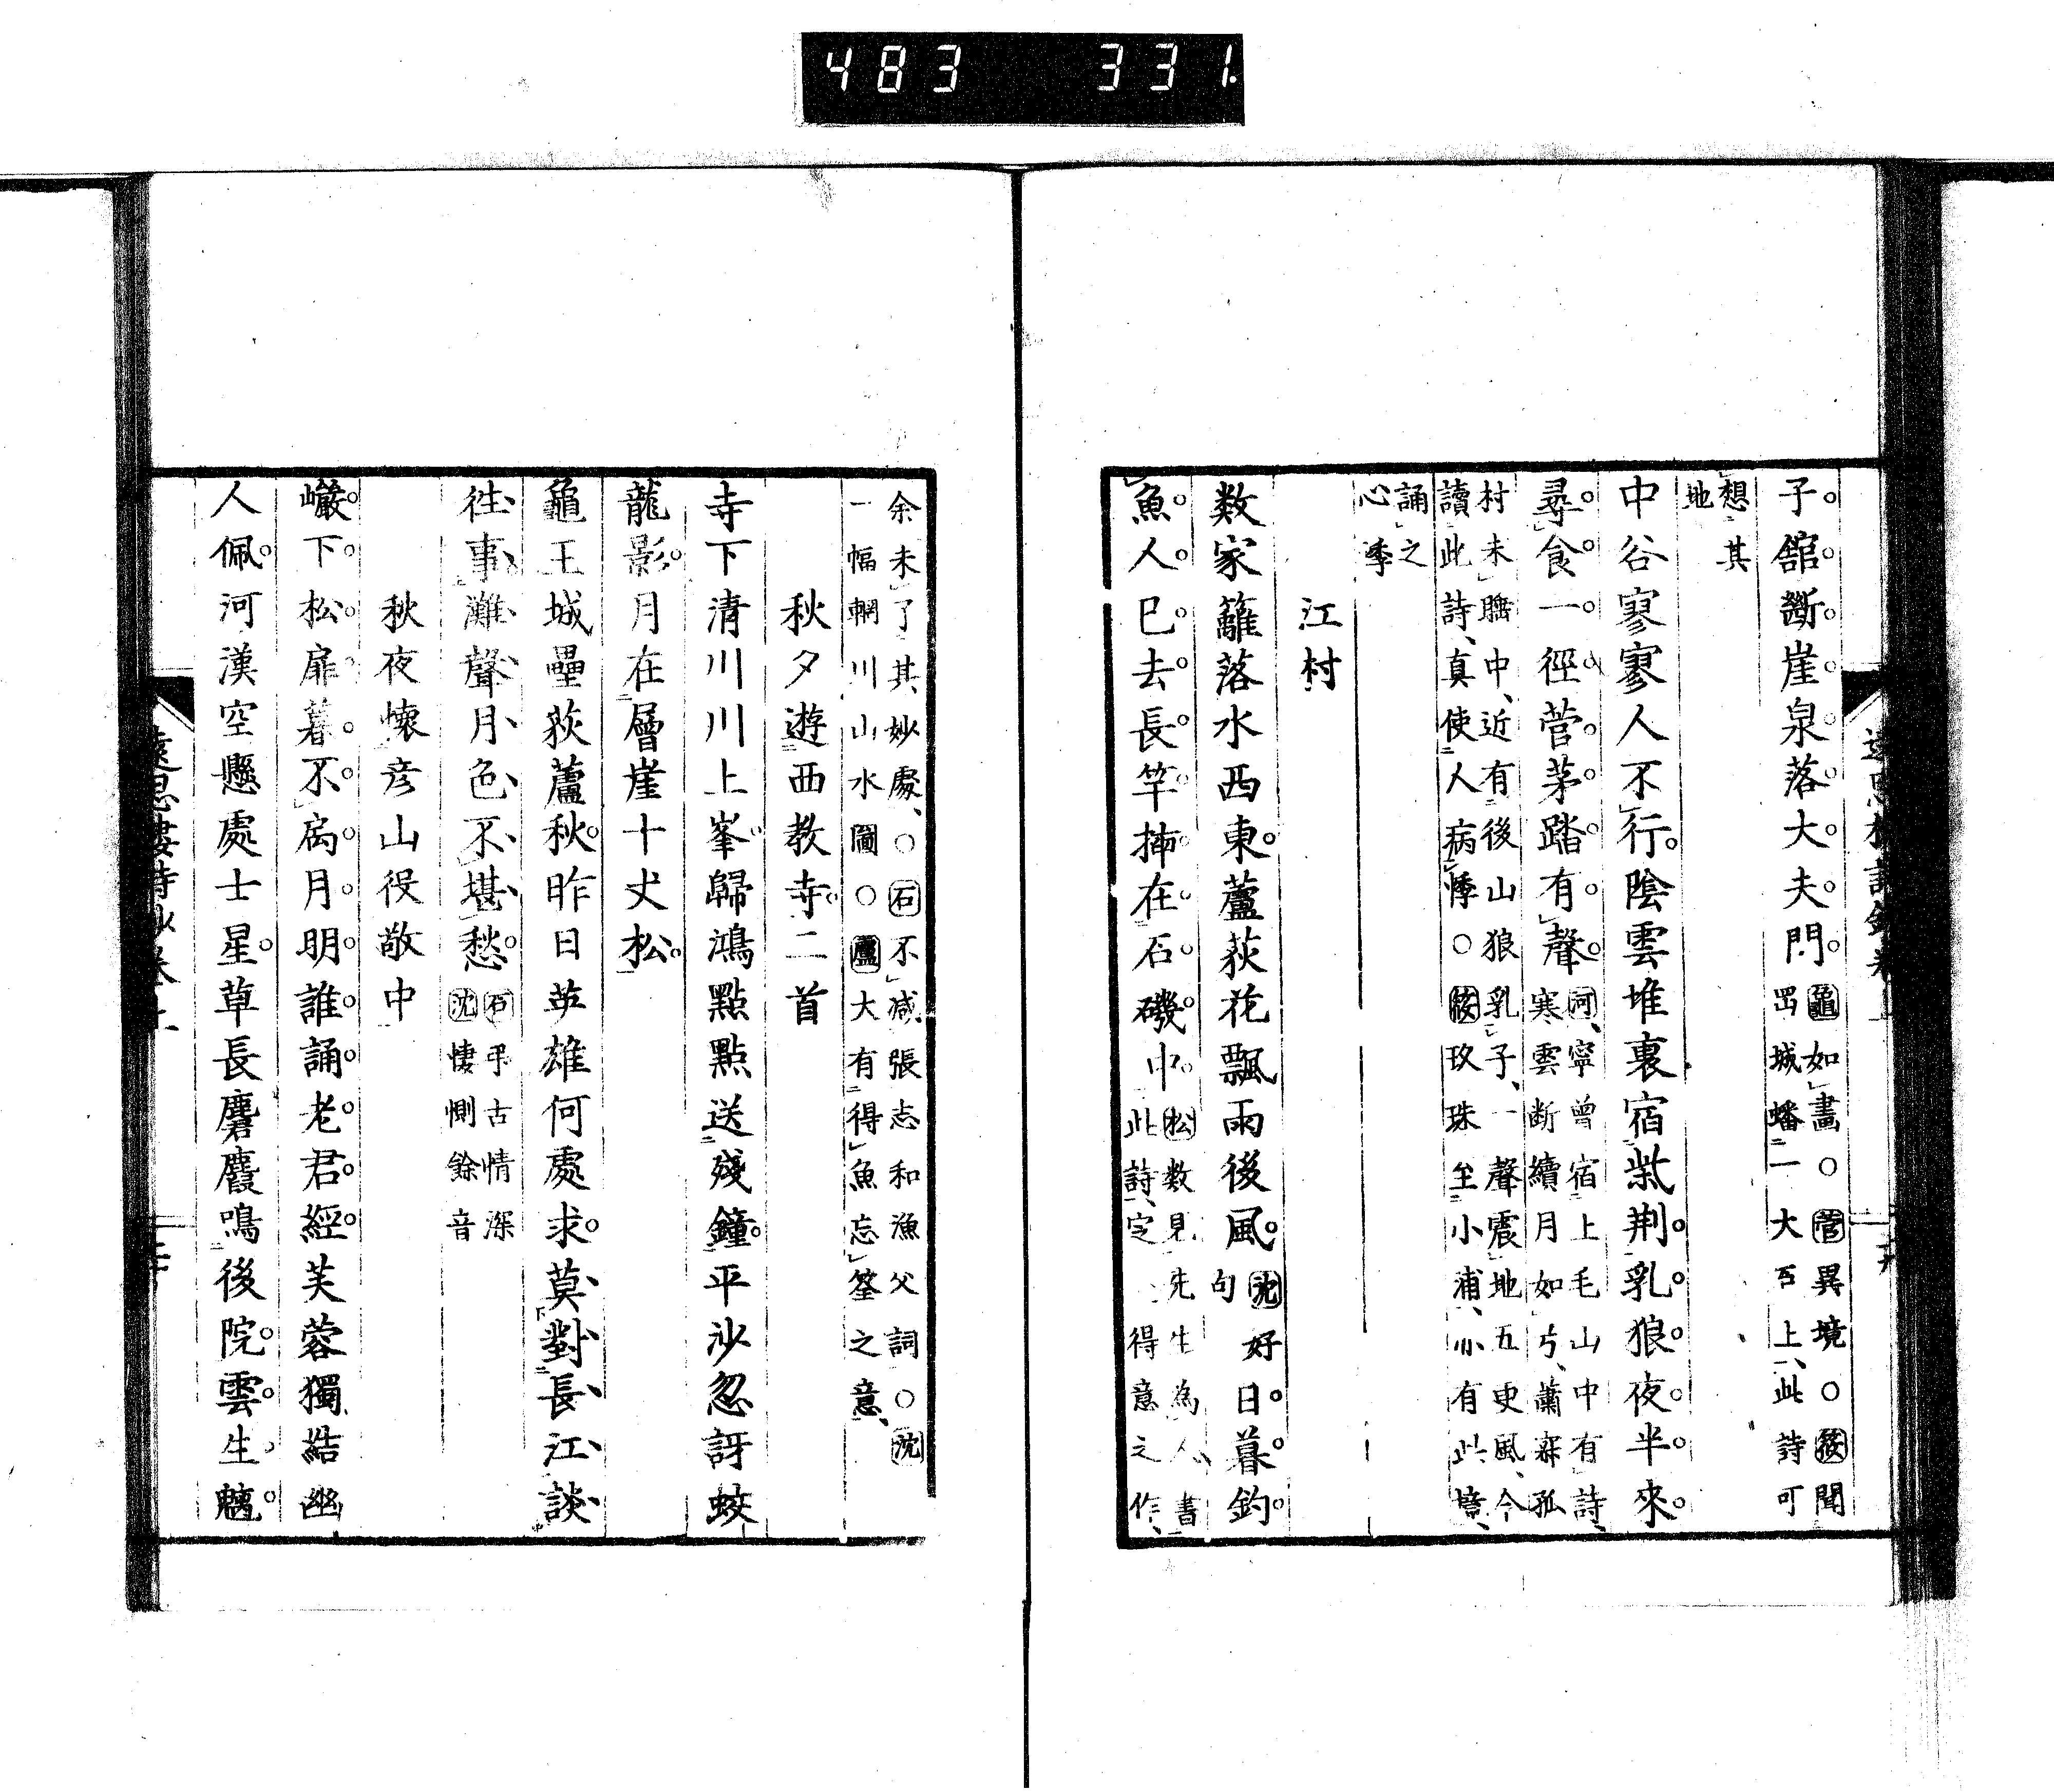 483 331
子館斷崖泉落大夫門
龜如畫○菅異境○筱聞
岊城蟠一大石上此詩可
想其
地
中谷寥寥人不行陰雲堆裏宿柴荊乳狼夜半來
尋食一徑菅茅踏有聲
河寧曾宿上毛山中有詩
寒雲斷續月如弓蕭寂孤
村未臨中近有後山狼乳子一聲震地五更風今
讀此詩真使人病悸○筱玫珠至小浦亦有此境
誦之
心季
江村
数家籬落水西東蘆荻花飄雨後風
沈好
句
日暮釣
魚人已去長竿插在石磯中
松数見先生為人書
此詩定得意之作
余未了其妙處○石不減張志和漁父詞○沈
一幅輞川山水圖○蘆大有得魚忘筌之意
秋夕遊西教寺二首
寺下清川川上峯歸鴻點點送殘鐘平沙忽訝蛟
龍影月在層崖十丈松
龜王城壘荻蘆秋昨日英雄何處求莫對長江談
往事灘聲月色不堪愁
石弔古情深
沈悽惻餘音
秋夜懷彥山役敬中
巖下松扉暮不扃月明誰誦老君經芙蓉獨結幽
人佩河漢空懸處士星草長麏麚鳴後院雲生魑
遠思樓詩鈔卷